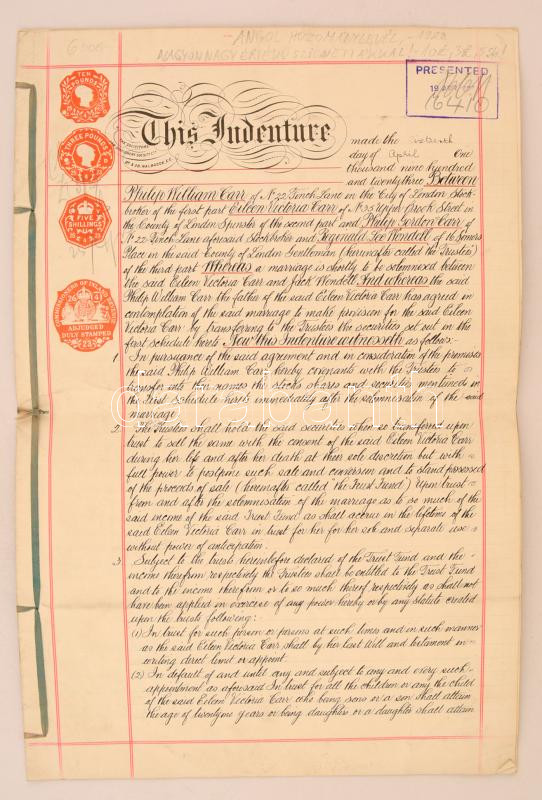 6000
ANGOL HOZOMÁNYLEVÉL, - 1923
TEN
POUNDS
THREE POUNDS
FIVE
SHILLINGS
COMMISSIONERS OF INLAND REVENUE
26 4
ADJUDGED
DULY STAMPED
23
PRESENTED
19 APR
This Indenture
made the
day of April One
thousand nine hundred
and twenty three Between
Philip William Carr of No 22 Finch Lane in the City of London Stock-
broker of the first part Eileen Victoria Carr of No 25 Upper Brook Street in
the County of London Spinster of the second part and Philip Gordon Carr of
No 22 Finch Lane aforesaid Stockbroker and Reginald Wendell of 16 Somers
Place in the said County of London Gentleman (hereinafter called the Trustees)
of the third part Whereas a marriage is shortly to be solemnised between
the said Eileen Victoria Carr and Jack Wendell And whereas the said
Philip William Carr the father of the said Eileen Victoria Carr has agreed in
contemplation of the said marriage to make provision for the said Eileen
Victoria Carr by transferring to the Trustees the securities set out in the
first schedule hereto Now this Indenture witnesseth as follows:-
1. In pursuance of the said agreement and in consideration of the premises
the said Philip William Carr hereby covenants with the Trustees to
transfer into their names the stocks shares and securities mentioned in
the First Schedule hereto immediately after the solemnisation of the said
marriage
2. The Trustees shall hold the said securities when so transferred upon
trust to sell the same with the consent of the said Eileen Victoria Carr
during her life and after her death at their sole discretion but with
full power to postpone such sale and conversion and to stand possessed
of the proceeds of sale (hereinafter called "the Trust Fund") Upon trust
from and after the solemnisation of the marriage as to so much of the
said income of the said Trust Fund as shall accrue in the lifetime of the
said Eileen Victoria Carr in trust for her for her sole and separate use
without power of anticipation.
3. Subject to the trusts hereinbefore declared of the Trust Fund and the
income therefrom respectively the Trustees shall be entitled to the Trust Fund
and to the income therefrom or to so much thereof respectively as shall not
have been applied in exercise of any power hereby or by any statute created
upon the trusts following:-
(1) In trust for such person or persons at such times and in such manner
as the said Eileen Victoria Carr shall by her last Will and testament in
writing direct limit or appoint.
(2) In default of and until any and subject to any and every such
appointment as aforesaid In trust for all the children or any the child
of the said Eileen Victoria Carr who being sons or a son shall attain
the age of twentyone years or being daughters or a daughter shall attain
darabanth